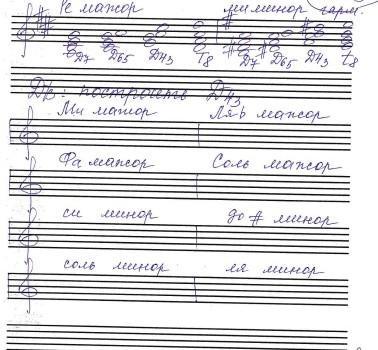 Ре мажор ми минор гарм.
D7 D65 D43 T8 D7 D65 D43 t8
Др: построить D43
Ми мажор Ля b мажор
Фа мажор Соль мажор
си минор до # минор
соль минор ля минор